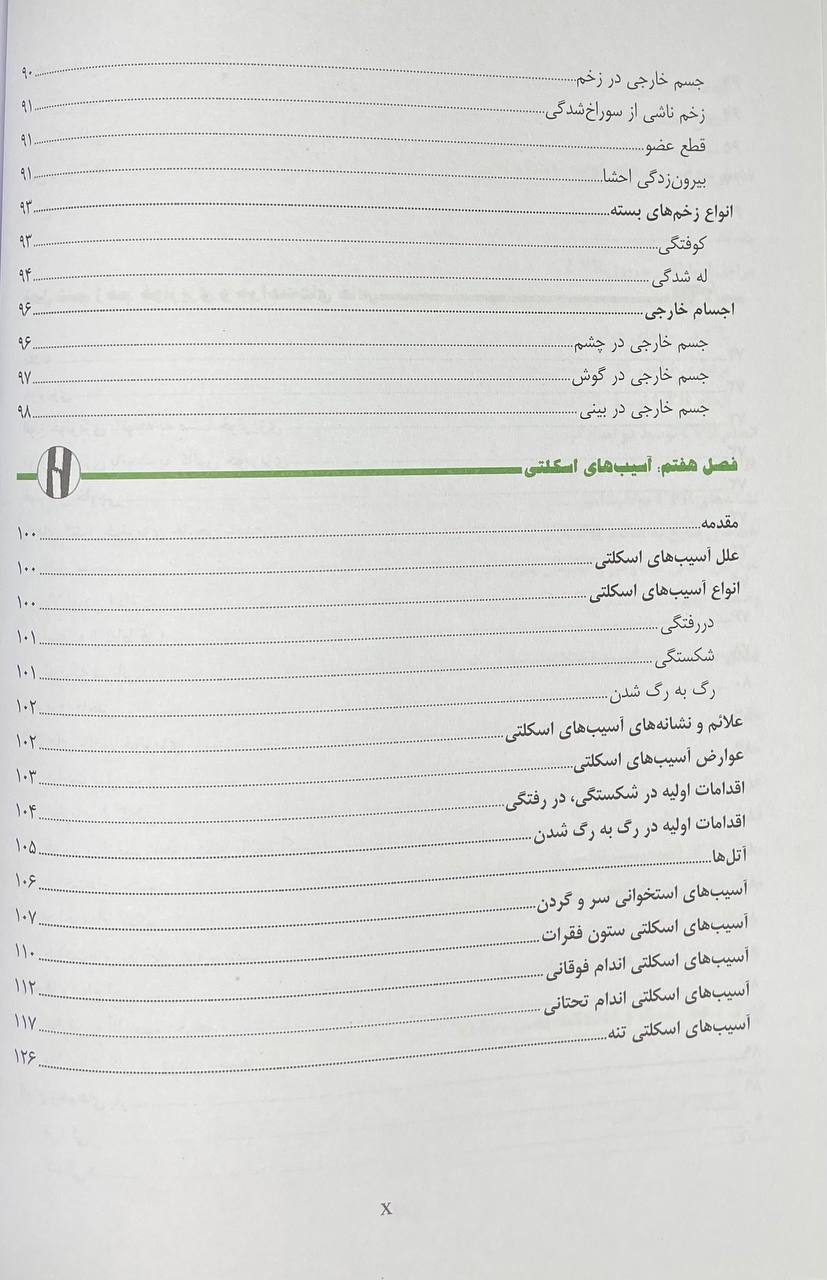 جسم خارجی در زخم ۹۰
زخم ناشی از سوراخ‌شدگی ۹۱
قطع عضو ۹۱
بیرون‌زدگی احشا ۹۱
انواع زخم‌های بسته ۹۳
کوفتگی ۹۳
له شدگی ۹۴
اجسام خارجی ۹۶
جسم خارجی در چشم ۹۶
جسم خارجی در گوش ۹۷
جسم خارجی در بینی ۹۸
فصل هفتم: آسیب‌های اسکلتی
مقدمه ۱۰۰
علل آسیب‌های اسکلتی ۱۰۰
انواع آسیب‌های اسکلتی ۱۰۰
دررفتگی ۱۰۱
شکستگی ۱۰۱
رگ به رگ شدن ۱۰۲
علائم و نشانه‌های آسیب‌های اسکلتی ۱۰۲
عوارض آسیب‌های اسکلتی ۱۰۳
اقدامات اولیه در شکستگی، در رفتگی ۱۰۴
اقدامات اولیه در رگ به رگ شدن ۱۰۵
آتل‌ها ۱۰۶
آسیب‌های استخوانی سر و گردن ۱۰۷
آسیب‌های اسکلتی ستون فقرات ۱۱۰
آسیب‌های اسکلتی اندام فوقانی ۱۱۲
آسیب‌های اسکلتی اندام تحتانی ۱۱۷
آسیب‌های اسکلتی تنه ۱۲۶
X